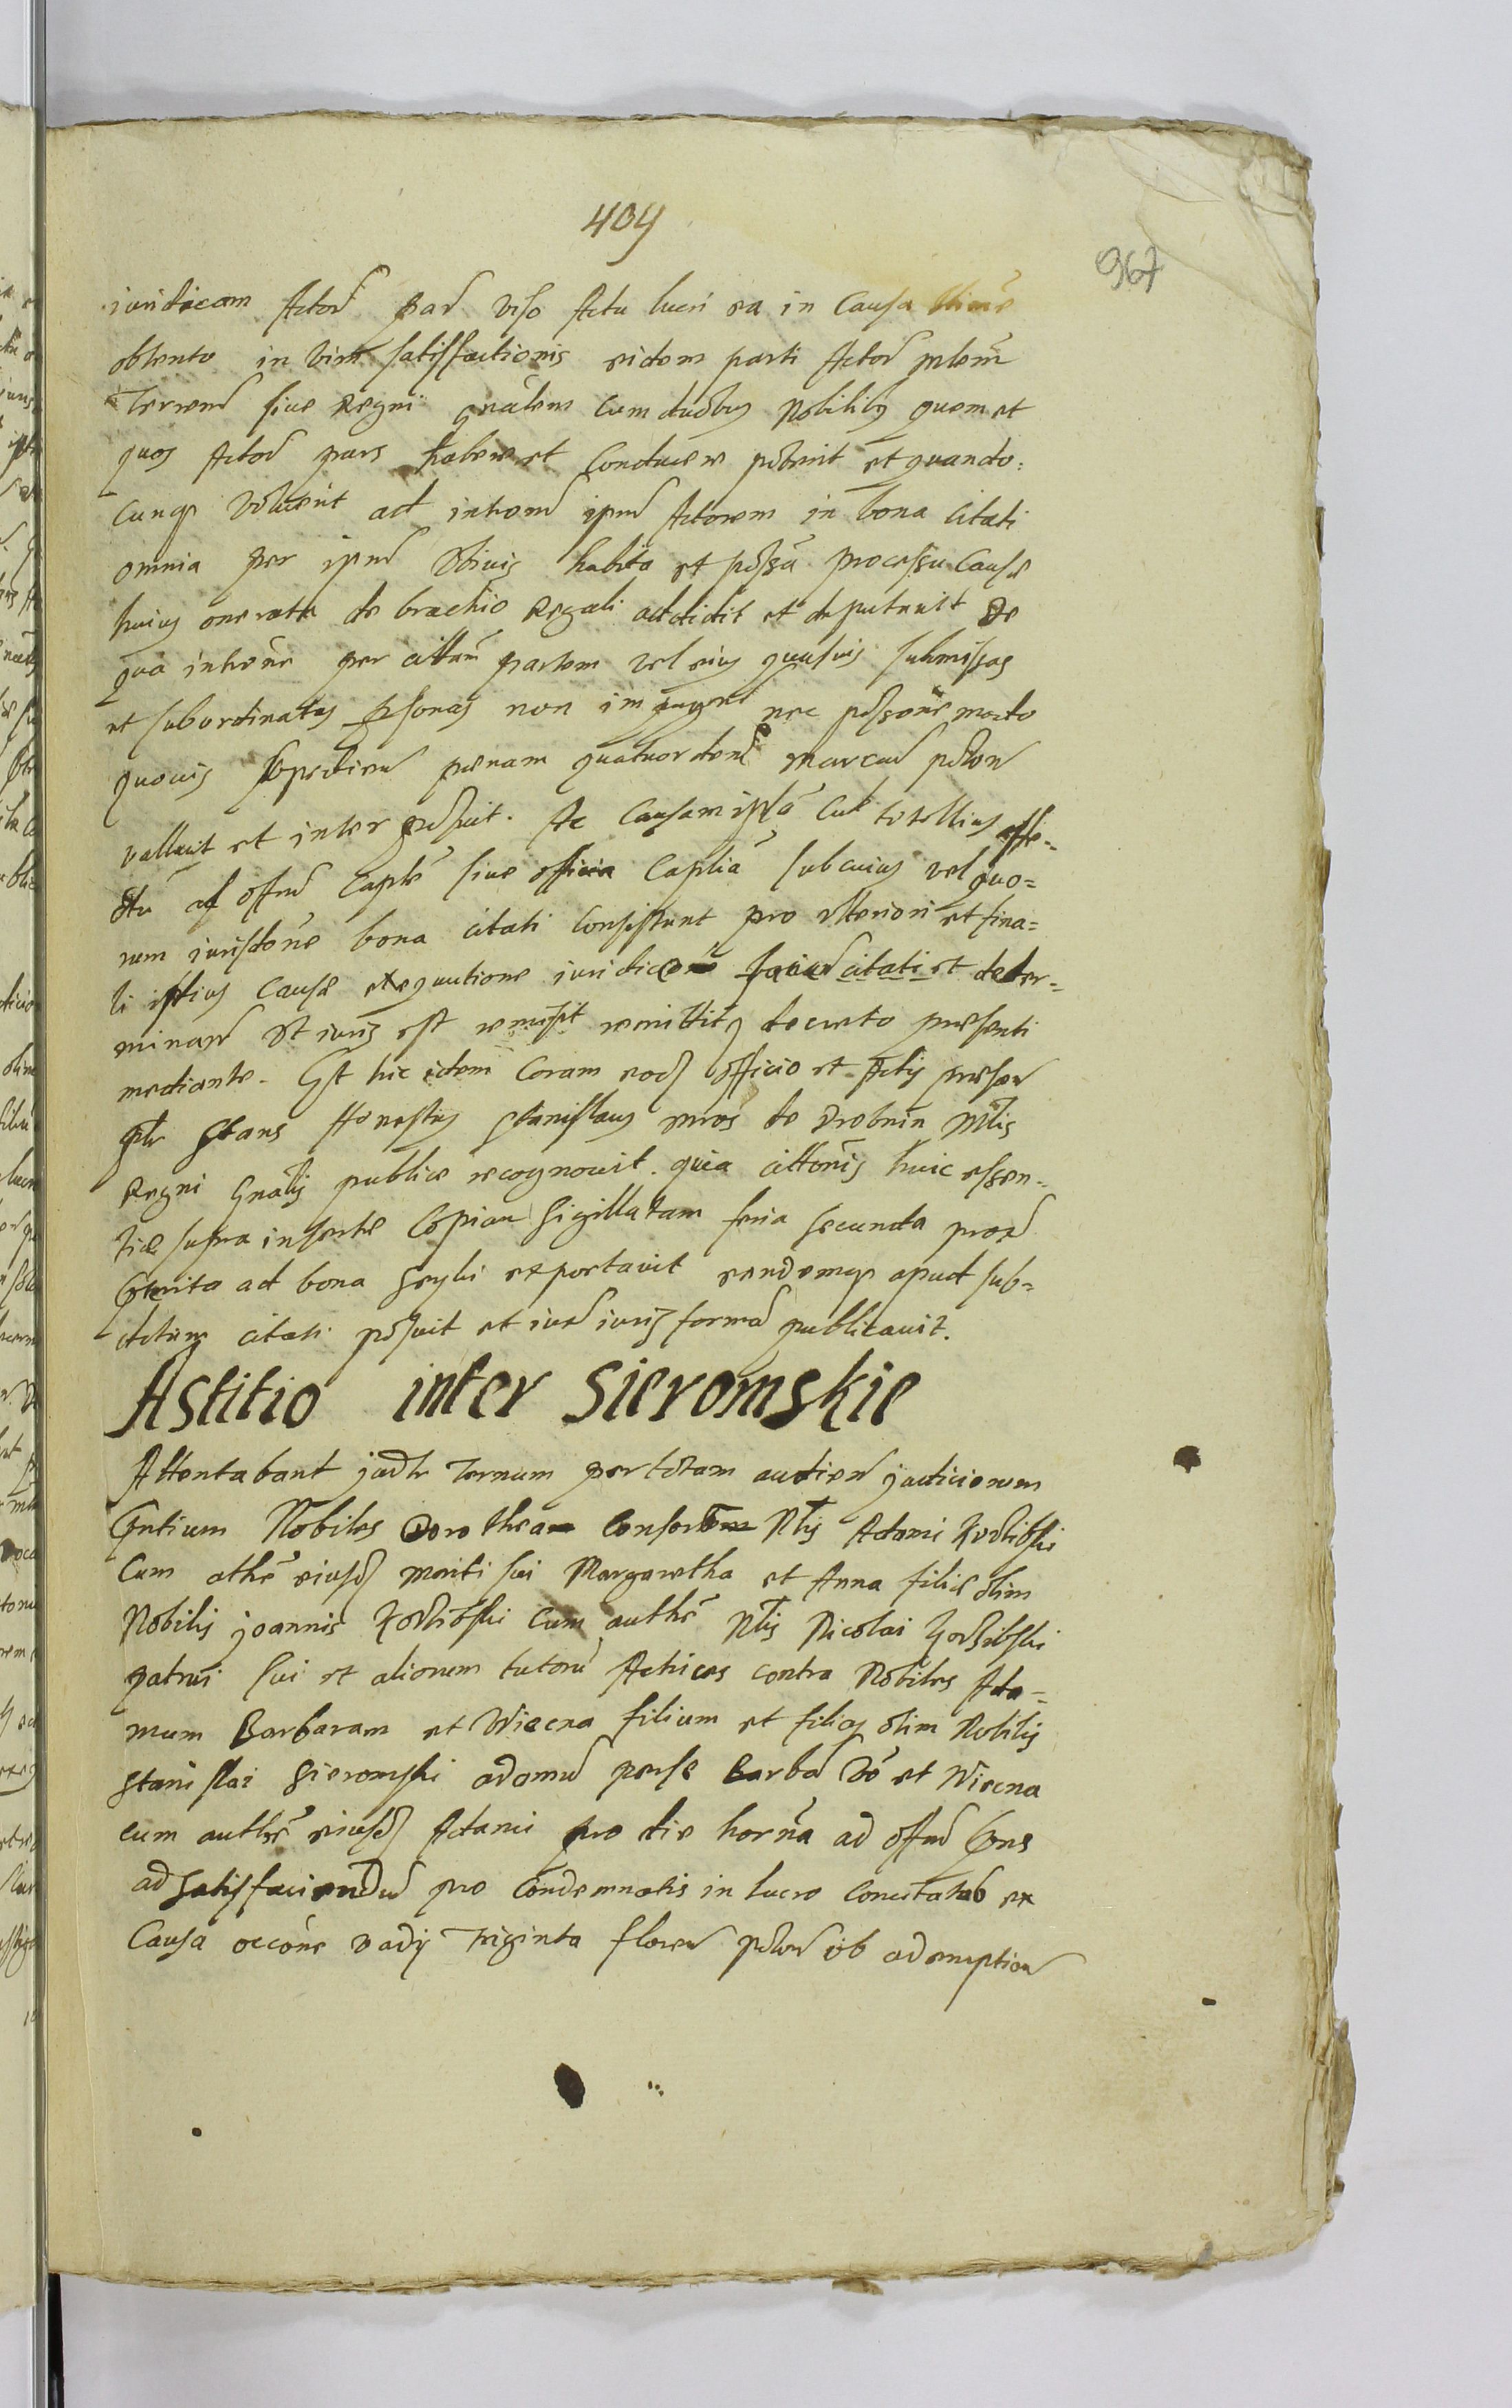 409
967
iuridicam Actorẽ par viso Actu lucri ea in Causa
obtento in vim satisfactionis eidem parti Actorẽ
Terrenũ siue Regni gnãlem cum duobus Nobilibus quem et
quos Actorẽ pars habere et conducere poterit et quando:
cunqe voluerit ad intromẽ ipm̃ Actorem in bona citati
omnia per ipm̃ vbiuis habita et possã processu Causæ
huius onerata de brachio Regali addidit et deputauit De
qua intrõne per cittãm partem vel eius quasuis submissas
et subordinatas psonas non impugnẽ nec possõne modo
quouis pœnam quatuordecĩ Marcarũ polon̄
vallauit et interposuit. Ac Causam istã cũ totalius effe-
ctũ ad offm̃ Captẽ siue officia Captĩa sub cuius vel quo=
rum iurisdõne bona citati consistunt pro vlteriori et fina=
li istius Causæ exequutione iuridica citati et deter=
minanđ vt iuris est remisit remittitq decreto præsenti
mediante. Est hic idem Coram eodẽ officio et Actis præsen
ptr stans Honestus Stanislaus mros de Drobnin Mtlis
Regni Gnãlis publice recognouit. quia citãonis huic essen=
tiæ supra insertæ Copiam Sigillatam feria secunda prox
ad bona exportauit eandemqe apud sub=
ditum citati posuit et iuxta iuris formã publicauit.
Astitio inter Sieromskie
Attentabant judr Ternum per totam audien judiciorum
Nobiles Dorothea Consortem Nlis Adami
Cum athẽ eiusdẽ mariti sui Margaretha et Anna filiæ olim
Nobilis Joannis cum authẽ Nlis Nicolai
patrui sui et aliorum tutorũ Actrices contra Nobiles Ada=
mum Barbaram et Wiecna filium et filias olim Nobilis
Stanislai Sieromski adamũ per se Barbã vẽ et Wiecna
cum authẽ eiusdẽ Adami pro die horñа ad offm̃
ad satisfaciendũ pro condemnatis in lucro ex
Causa occõne vadij Triginta floren polon ob ademption